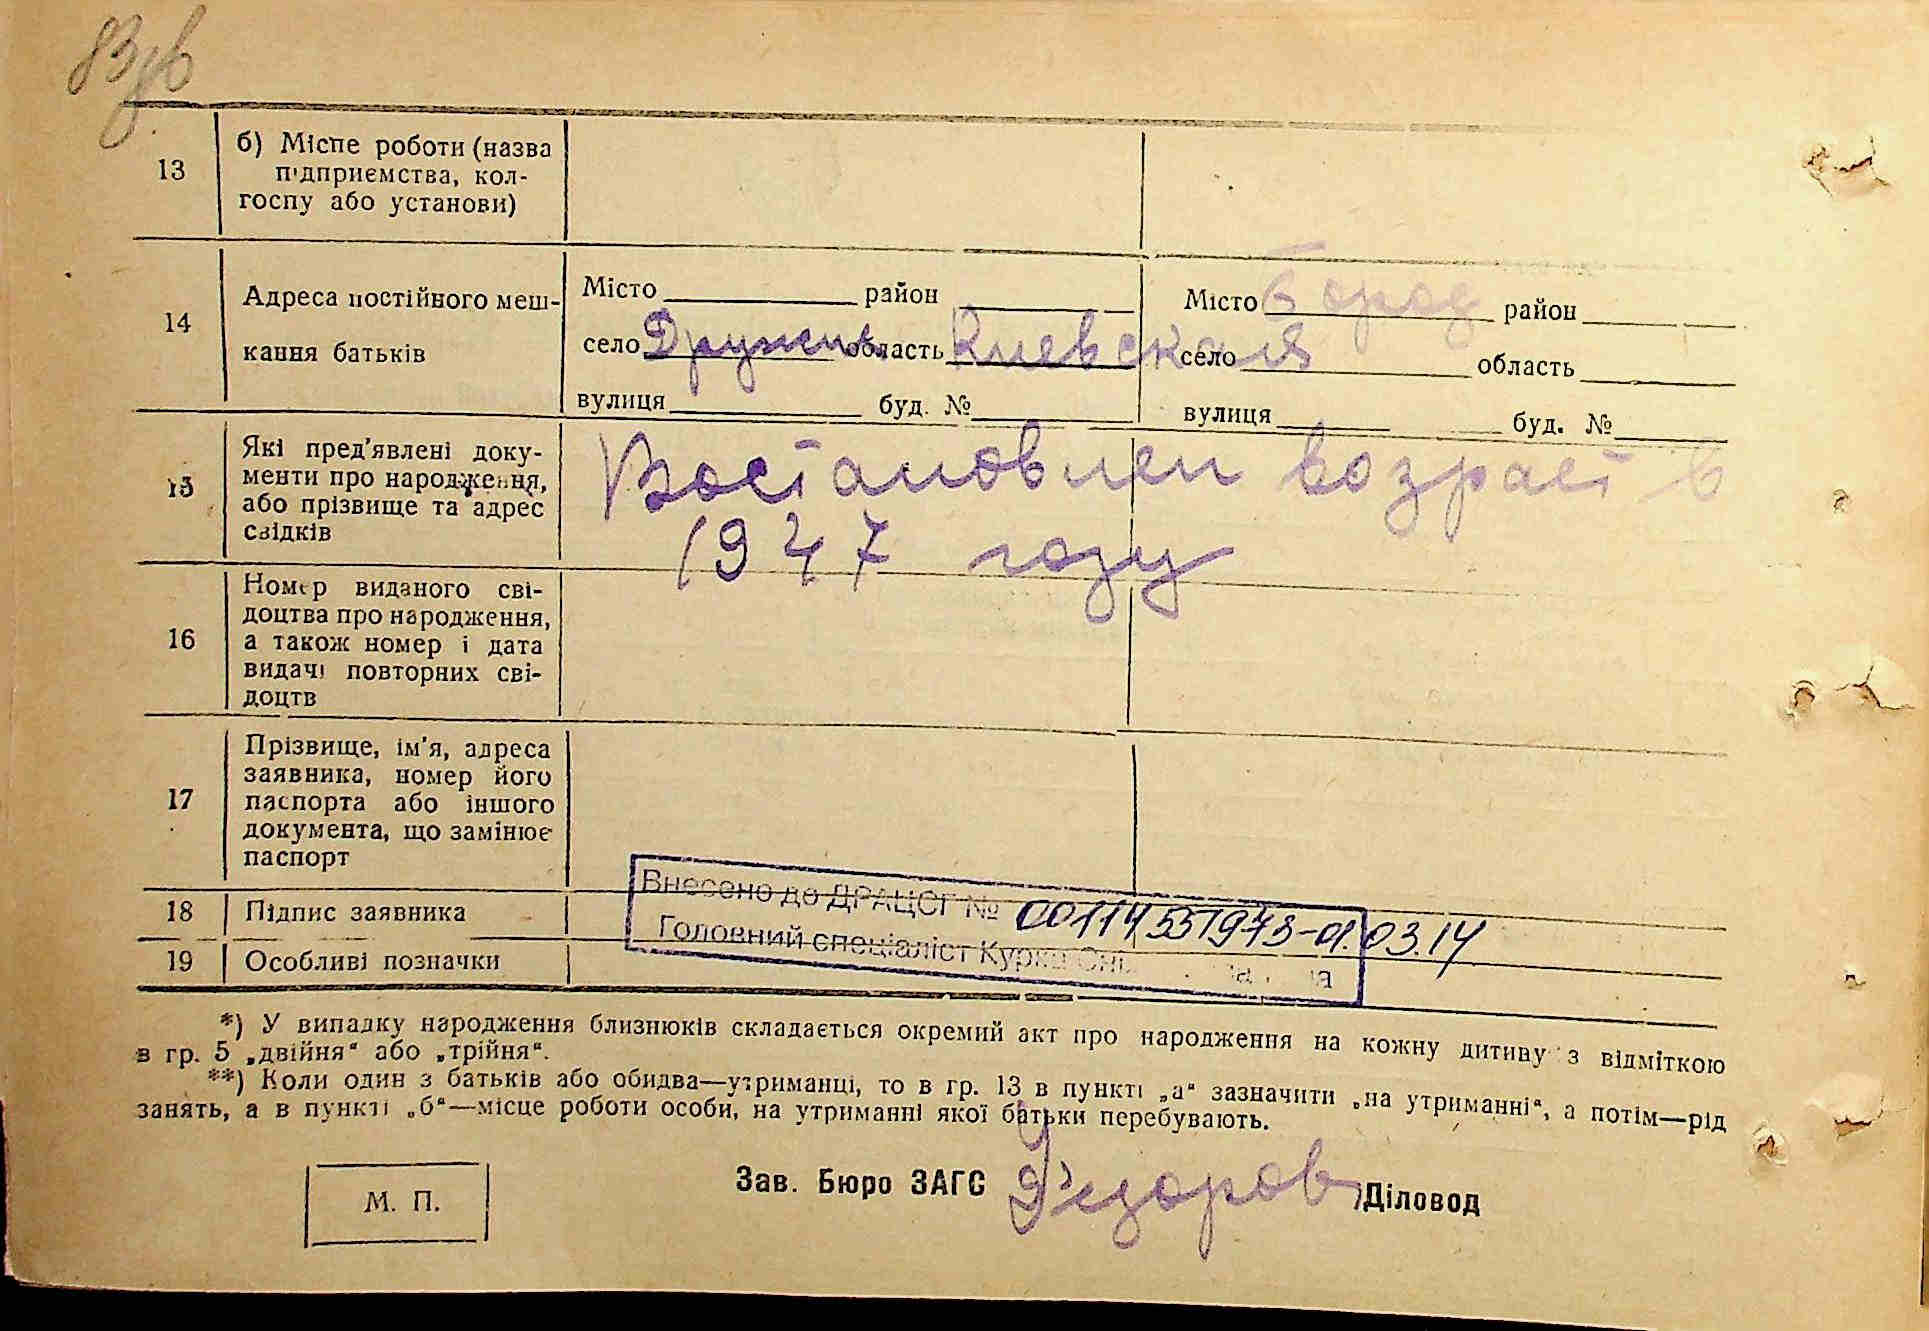 83зв
13
б) Місце роботи (назва
підприємства, кол-
госпу або установи)
14
Адреса постійного меш-
кання батьків
Місто район
село Дружня область Киевская
вулиця буд. №
Місто Бород район
село область
вулиця буд. №
15
Які пред'явлені доку-
менти про народження,
або прізвище та адрес
свідків
Востановлен возраст в
1947 году
16
Номер виданого сві-
доцтва про народження,
а також номер і дата
видачі повторних сві-
доцтв
17
Прізвище, ім'я, адреса
заявника, номер його
паспорта або іншого
документа, що замінює
паспорт
18
Підпис заявника
19
Особливі позначки
Внесено до ДРАЦСГ № 00114551973-01.03.14
Головний спеціаліст Курка
*) У випадку народження близнюків складається окремий акт про народження на кожну дитину з відміткою
в гр. 5 „двійня“ або „трійня“.
**) Коли один з батьків або обидва—утриманці, то в гр. 13 в пункті „а“ зазначити „на утриманні“, а потім—рід
занять, а в пункті „б“—місце роботи особи, на утриманні якої батьки перебувають.
М. П.
Зав. Бюро ЗАГС Федоров Діловод